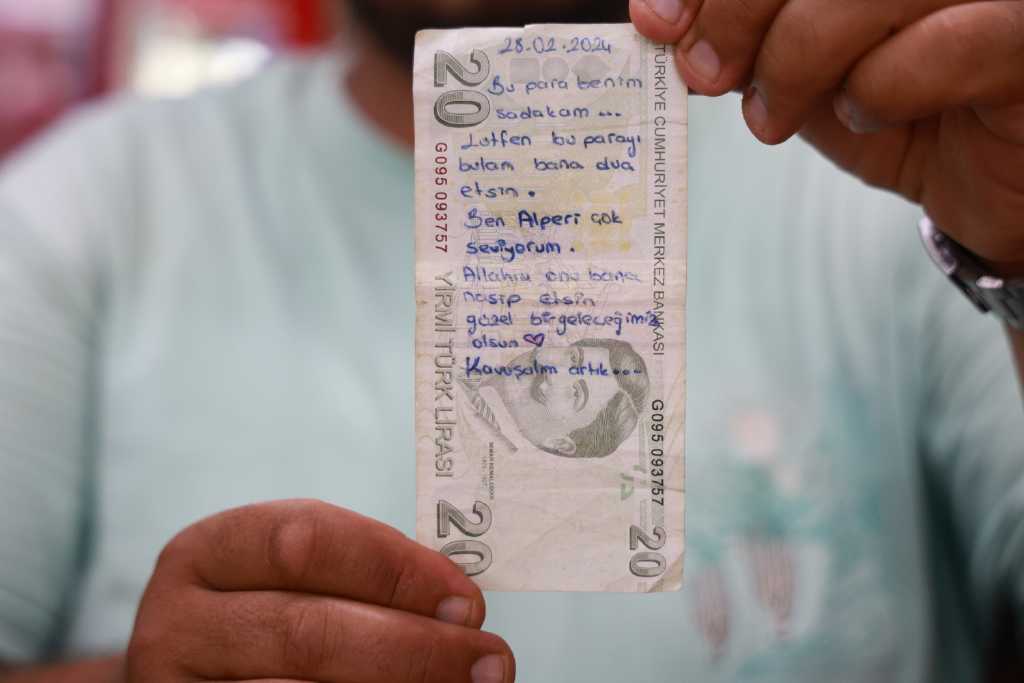 28.02.2024
Bu para benim
sadakam ...
Lütfen bu parayı
bulam bana dua
etsin.
Ben Alperi çok
seviyorum.
Allahım onu bana
nasip etsin
güzel bir geleceğimiz
olsun ♡
Kavuşalım artık....
20
G095 093757
YİRMİ TÜRK LİRASI
20
TÜRKİYE CUMHURİYET MERKEZ BANKASI
G095 093757
20